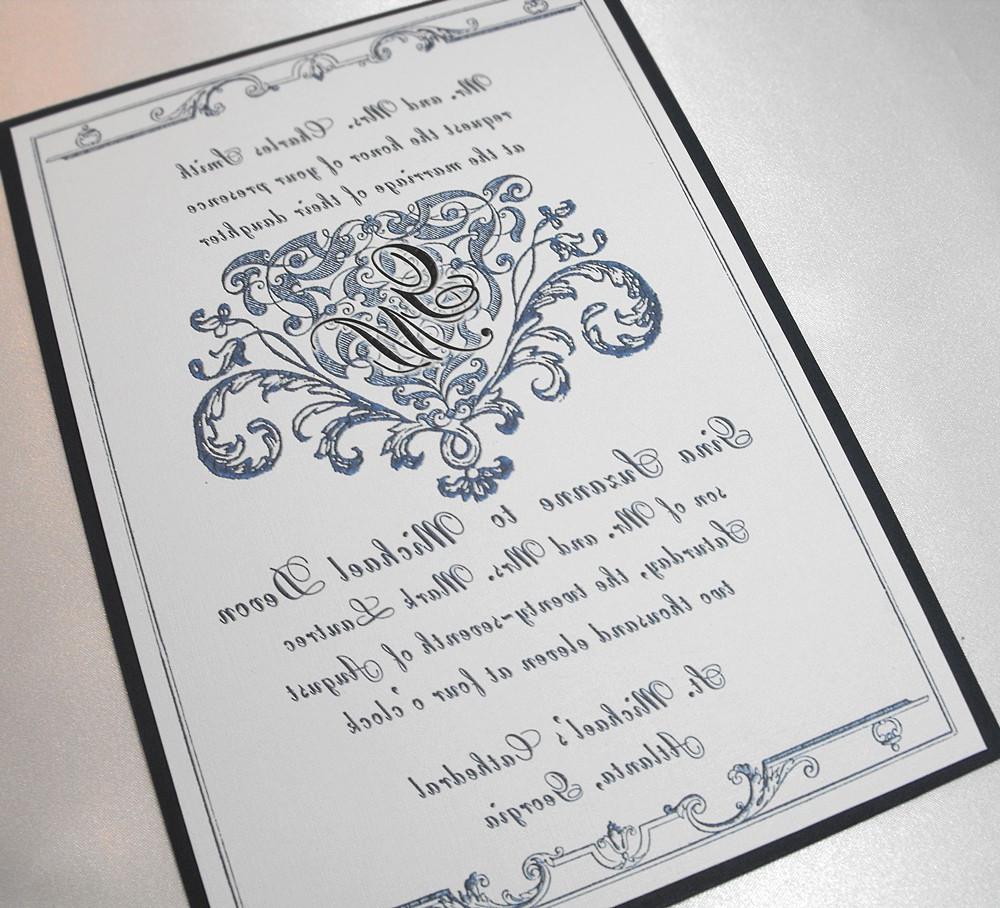 Mr. and Mrs. Charles Smith
request the honor of your presence
at the marriage of their daughter
Gina Suzanne to Michael Devon
son of Mr. and Mrs. Mark Lautrec
Saturday, the twenty-seventh of August
two thousand eleven at four o'clock
St. Michael's Cathedral
Atlanta, Georgia